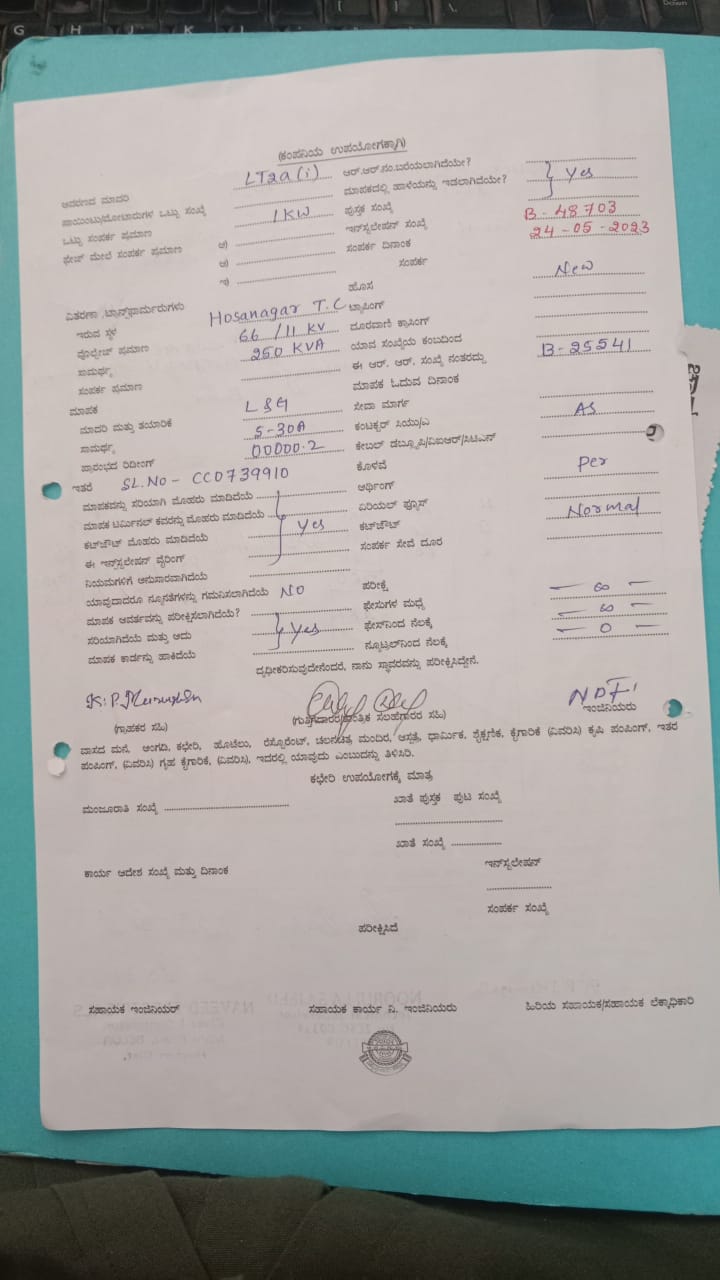 (ಕಂಪನಿಯ ಉಪಯೋಗಕ್ಕಾಗಿ)
LT2a(i) ಆರ್.ಆರ್.ನಂ.ಬರೆಯಲಾಗಿದೆಯೇ?
ಮಾಪಕದಲ್ಲಿ ಹಾಳೆಯನ್ನು ಇಡಲಾಗಿದೆಯೇ? Yes
ಒಟ್ಟು ಸಂಪರ್ಕ ಪ್ರಮಾಣ 1KW ಪುಸ್ತಕ ಸಂಖ್ಯೆ
ಫೇಸ್ ಮೇಲೆ ಸಂಪರ್ಕ ಪ್ರಮಾಣ ಇನ್‌ಸ್ಟಲೇಷನ್ ಸಂಖ್ಯೆ B-48703
ಸಂಪರ್ಕ ದಿನಾಂಕ 24-05-2023
ಸಂಪರ್ಕ
ಹೊಸ New
ವಿತರಣಾ ಟ್ರಾನ್ಸ್‌ಫಾರ್ಮರುಗಳು
ಇರುವ ಸ್ಥಳ Hosanagar T.C ಟ್ಯಾಪಿಂಗ್
ವೋಲ್ಟೇಜ್ ಪ್ರಮಾಣ 66/11 KV ದೂರವಾಣಿ ಕ್ರಾಸಿಂಗ್
ಸಾಮರ್ಥ್ಯ 250 KVA ಯಾವ ಸಂಖ್ಯೆಯ ಕಂಬದಿಂದ
ಸಂಪರ್ಕ ಪ್ರಮಾಣ ಈ ಆರ್. ಆರ್. ಸಂಖ್ಯೆ ನಂತರದ್ದು B-25541
ಮಾಪಕ ಮಾಪಕ ಓದುವ ದಿನಾಂಕ
ಮಾದರಿ ಮತ್ತು ತಯಾರಿಕೆ L&G ಸೇವಾ ಮಾರ್ಗ
ಸಾಮರ್ಥ್ಯ 5-30A AS
ಪ್ರಾರಂಭದ ರೀಡಿಂಗ್ 00000.2
ಇತರೆ SL.No- CC0739910 ಕೊಳವೆ
ಮಾಪಕವನ್ನು ಸರಿಯಾಗಿ ಮೊಹರು ಮಾಡಿದೆಯೆ ಅರ್ಥಿಂಗ್ Per
ಮಾಪಕ ಟರ್ಮಿನಲ್ ಕವರನ್ನು ಮೊಹರು ಮಾಡಿದೆಯೆ Yes ಏರಿಯಲ್ ಫ್ಯೂಸ್
ಕಟ್‌ಔಟ್ ಮೊಹರು ಮಾಡಿದೆಯೆ ಕಟ್‌ಔಟ್ Normal
ಈ ಇನ್‌ಸ್ಟಲೇಷನ್ ವೈರಿಂಗ್ ಸಂಪರ್ಕ ಸೇವೆ ದೂರ
ನಿಯಮಗಳಿಗೆ ಅನುಸಾರವಾಗಿದೆಯೆ
ಯಾವುದಾದರೂ ನ್ಯೂನತೆಗಳನ್ನು ಗಮನಿಸಲಾಗಿದೆಯೆ NO ಪರೀಕ್ಷೆ
ಮಾಪಕ ಆವರ್ತವನ್ನು ಪರೀಕ್ಷಿಸಲಾಗಿದೆಯೆ? ಫೇಸುಗಳ ಮಧ್ಯೆ — ∞ —
ಸರಿಯಾಗಿದೆಯೆ ಮತ್ತು ಅದು Yes ಫೇಸ್‌ನಿಂದ ನೆಲಕ್ಕೆ — ∞ —
ಮಾಪಕ ಕಾರ್ಡನ್ನು ಹಾಕಿದೆಯೆ ನ್ಯೂಟ್ರಲ್‌ನಿಂದ ನೆಲಕ್ಕೆ — 0 —
ದೃಢೀಕರಿಸುವುದೇನೆಂದರೆ, ನಾನು ಸ್ಥಾವರವನ್ನು ಪರೀಕ್ಷಿಸಿದ್ದೇನೆ.
(ಗ್ರಾಹಕರ ಸಹಿ) (ಗುತ್ತಿಗೆದಾರರ/ತಾಂತ್ರಿಕ ಸಲಹೆಗಾರರ ಸಹಿ) ಇಂಜಿನಿಯರು
ವಾಸದ ಮನೆ, ಅಂಗಡಿ, ಕಛೇರಿ, ಹೋಟೆಲು, ರೆಸ್ಟೋರೆಂಟ್, ಚಲನಚಿತ್ರ ಮಂದಿರ, ಆಸ್ಪತ್ರೆ, ಧಾರ್ಮಿಕ, ಶೈಕ್ಷಣಿಕ, ಕೈಗಾರಿಕೆ (ವಿವರಿಸಿ) ಕೃಷಿ ಪಂಪಿಂಗ್, ಇತರ
ಪಂಪಿಂಗ್, (ವಿವರಿಸಿ) ಗೃಹ ಕೈಗಾರಿಕೆ, (ವಿವರಿಸಿ), ಇದರಲ್ಲಿ ಯಾವುದು ಎಂಬುದನ್ನು ತಿಳಿಸಿರಿ.
ಕಛೇರಿ ಉಪಯೋಗಕ್ಕೆ ಮಾತ್ರ
ಮಂಜೂರಾತಿ ಸಂಖ್ಯೆ ಖಾತೆ ಪುಸ್ತಕ ಪುಟ ಸಂಖ್ಯೆ
ಖಾತೆ ಸಂಖ್ಯೆ
ಕಾರ್ಯ ಆದೇಶ ಸಂಖ್ಯೆ ಮತ್ತು ದಿನಾಂಕ ಇನ್‌ಸ್ಟಲೇಷನ್
ಸಂಪರ್ಕ ಸಂಖ್ಯೆ
ಪರೀಕ್ಷಿಸಿದೆ
ಸಹಾಯಕ ಇಂಜಿನಿಯರ್ ಸಹಾಯಕ ಕಾರ್ಯ ನಿ. ಇಂಜಿನಿಯರು ಹಿರಿಯ ಸಹಾಯಕ/ಸಹಾಯಕ ಲೆಕ್ಕಾಧಿಕಾರಿ